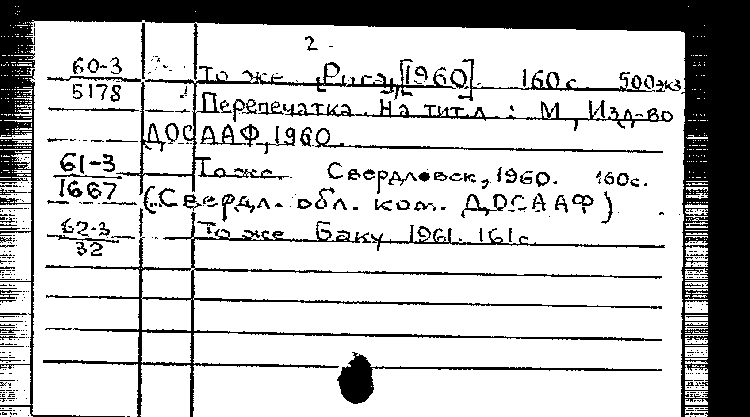 2.
60-3 То же. Рига, [1960]. 160 с. 500 экз
5178 Перепечатка. На тит.л.: М, Изд-во
ДОСААФ, 1960.
61-3 То же. Свердловск, 1960. 160с.
1667 (Свердл. обл. ком. ДОСААФ).
62-3 То же Баку 1961. 161с.
32